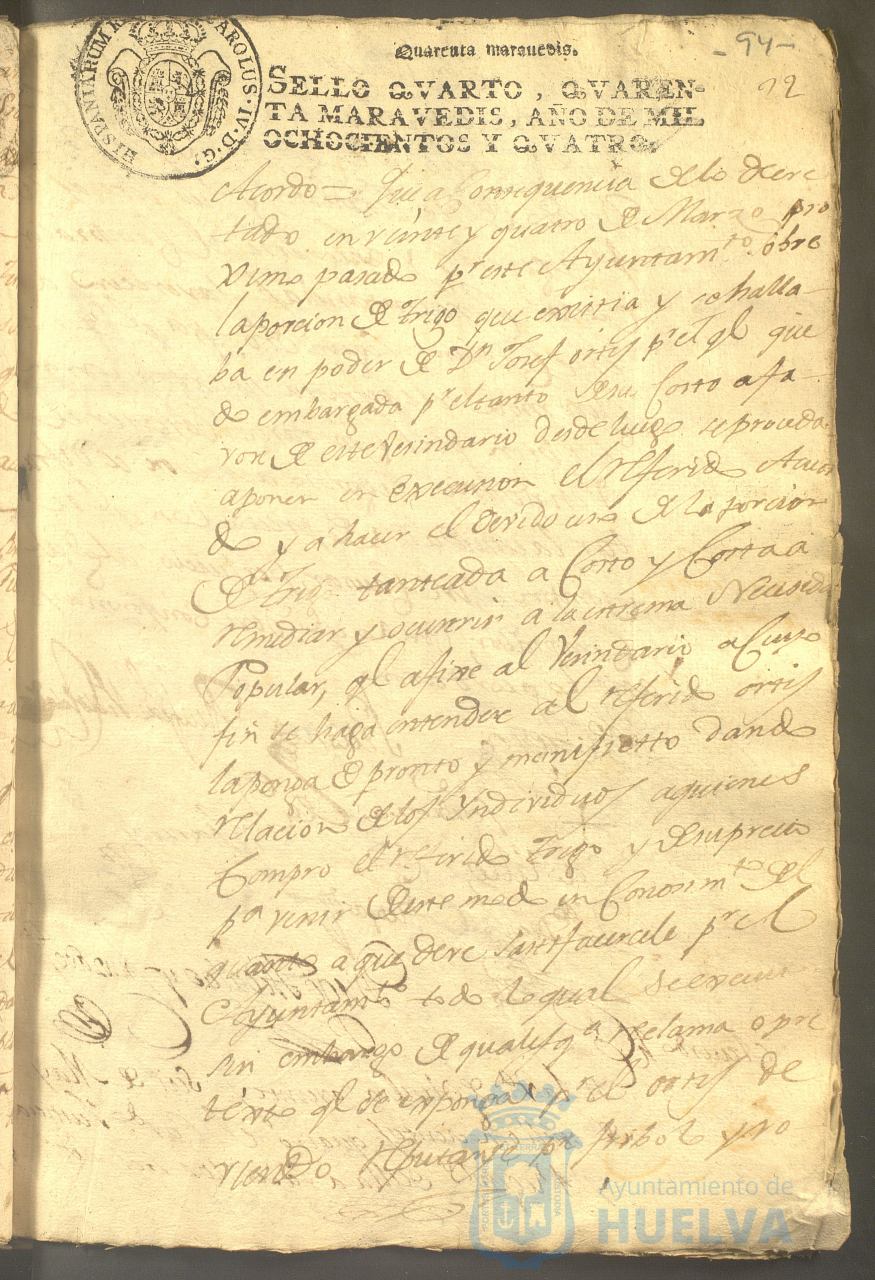 HISPANIARUM R CAROLUS·IV·D·G·
Quarenta marauedis.
- 94 -
SELLO QVARTO, QVAREN-
TA MARAVEDIS, AÑO DE MIL
OCHOCIENTOS Y QVATRO.
Acordo = Que a Consequencia de lo decre
tado en veinte y quatro de Marzo pro
vimo pasado pr este Ayuntamto. sobre
la porcion de trigo que existia y se halla
ba en poder de Dn Josef ortis pr el ql que
do embargada pr el tanto de su Costo a fa
vor de este Vesindario desde luego se proceda
a poner en execusion el referido Acuer
do y a hacer el devido uso de la porcion
de trigo tanteada a Costo y Costa a
remediar y ocurrir a la extrema Necesida
Popular, ql aflixe al Vesindario a Cuyo
fin se haga entender al referido ortis
la ponga de pronto y manifiesto dando
relacion de los Yndividuos a quienes
Compro el referido trigo y de su precio
pa venir de este modo en Conosimto del
quanto a que deve satisfacersele pr el
Ayuntamto todo lo qual se execute
sin embargo de qualesqa reclama o pre
texto ql se exponga pr el ortis de
viendo reputarse pr fribolo y vo
Ayuntamiento de
HUELVA